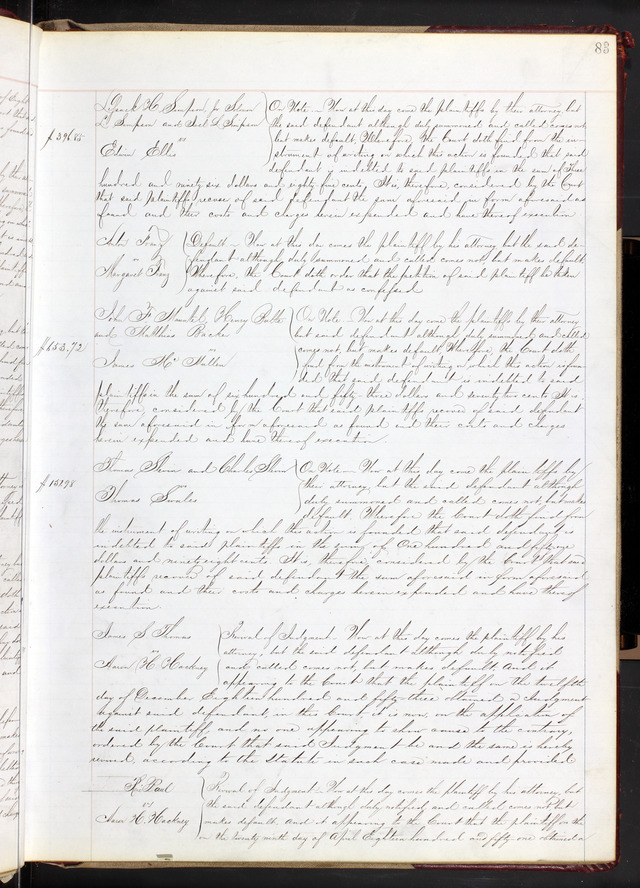 83
H. Simpson, Jr.
Simpson and L Simpson
vs
Edwin Ellis
$396.85
On Note - Now at this day come the plaintiffs by their attorney, but
the said defendant although duly summoned and called comes not
but makes default. Wherefore, the Court doth find from the in-
strument of writing on which this action is founded that said
defendant is indebted to said plaintiffs in the sum of Three
hundred and ninety six dollars and eighty five cents. It is, therefore, considered by the Court
that said plaintiffs recover of said defendant the sum aforesaid in form aforesaid as
found and their costs and charges herein expended and have thereof execution
vs
Margaret
Default - Now at this day comes the plaintiff by his attorney but the said de-
fendant although duly summoned and called comes not, but makes default
Wherefore, the Court doth order that the petition of said plaintiff be taken
against said defendant as confessed
John F Henry
and Matthias Backer
vs
James McMullen
$653.72
On Note Now at this day come the plaintiffs by their attorney
but said defendant although duly summoned and called
comes not, but makes default, Wherefore, the Court doth
find from the instrument of writing on which this action is foun-
ded that said defendant is indebted to said
plaintiffs in the sum of six hundred and fifty three dollars and seventy two cents. It is,
therefore, considered by the Court that said plaintiffs recover of said defendant
the sum aforesaid in form aforesaid as found and their costs and charges
herein expended and have thereof execution
Thomas and Charles
vs
Thomas Swales
$151.98
On Note - Now at this day come the plaintiffs by
their attorney, but the said defendant although
duly summoned and called comes not, but makes
default. Wherefore the Court doth find from
the instrument of writing on which the action is founded that said defendant is
indebted to said plaintiffs in the sum of One hundred and fifty one
dollars and ninety eight cents. It is, therefore, considered by the Court that said
plaintiffs recover of said defendant the sum aforesaid in form aforesaid
as found and their costs and charges herein expended and have thereof
execution.
James S Thomas
vs
Aaron H Hackney
Revival of Judgment. Now at this day comes the plaintiff by his
attorney, but the said defendant although duly notified
and called comes not, but makes default and it
appearing to the Court that the plaintiff on the twelfth
day of December Eighteen hundred and fifty-three obtained a Judgment
against said defendant, in this Court, it is now, on the application of
the said plaintiff, and no one appearing to show cause to the contrary,
ordered by the Court that said Judgment be and the same is hereby
revived, according to the Statute in such case made and provided
R. Paul
vs
Aaron H. Hackney
Revival of Judgment - Now at this day comes the plaintiff by his attorney, but
the said defendant although duly notified and called comes not but
makes default and it appearing to the Court that the plaintiff on the
on the twenty ninth day of April Eighteen hundred and fifty-one obtained a